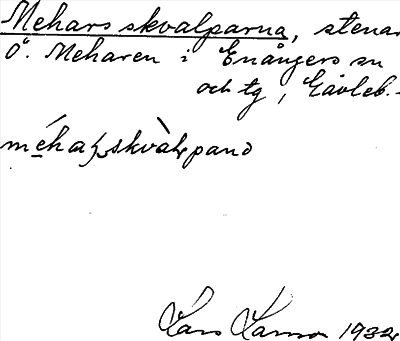 Meharsskvalparna, stenar
Ö. Meharen i Enångers sn
och tg, Gävleb.-
Lars Larsson 1932